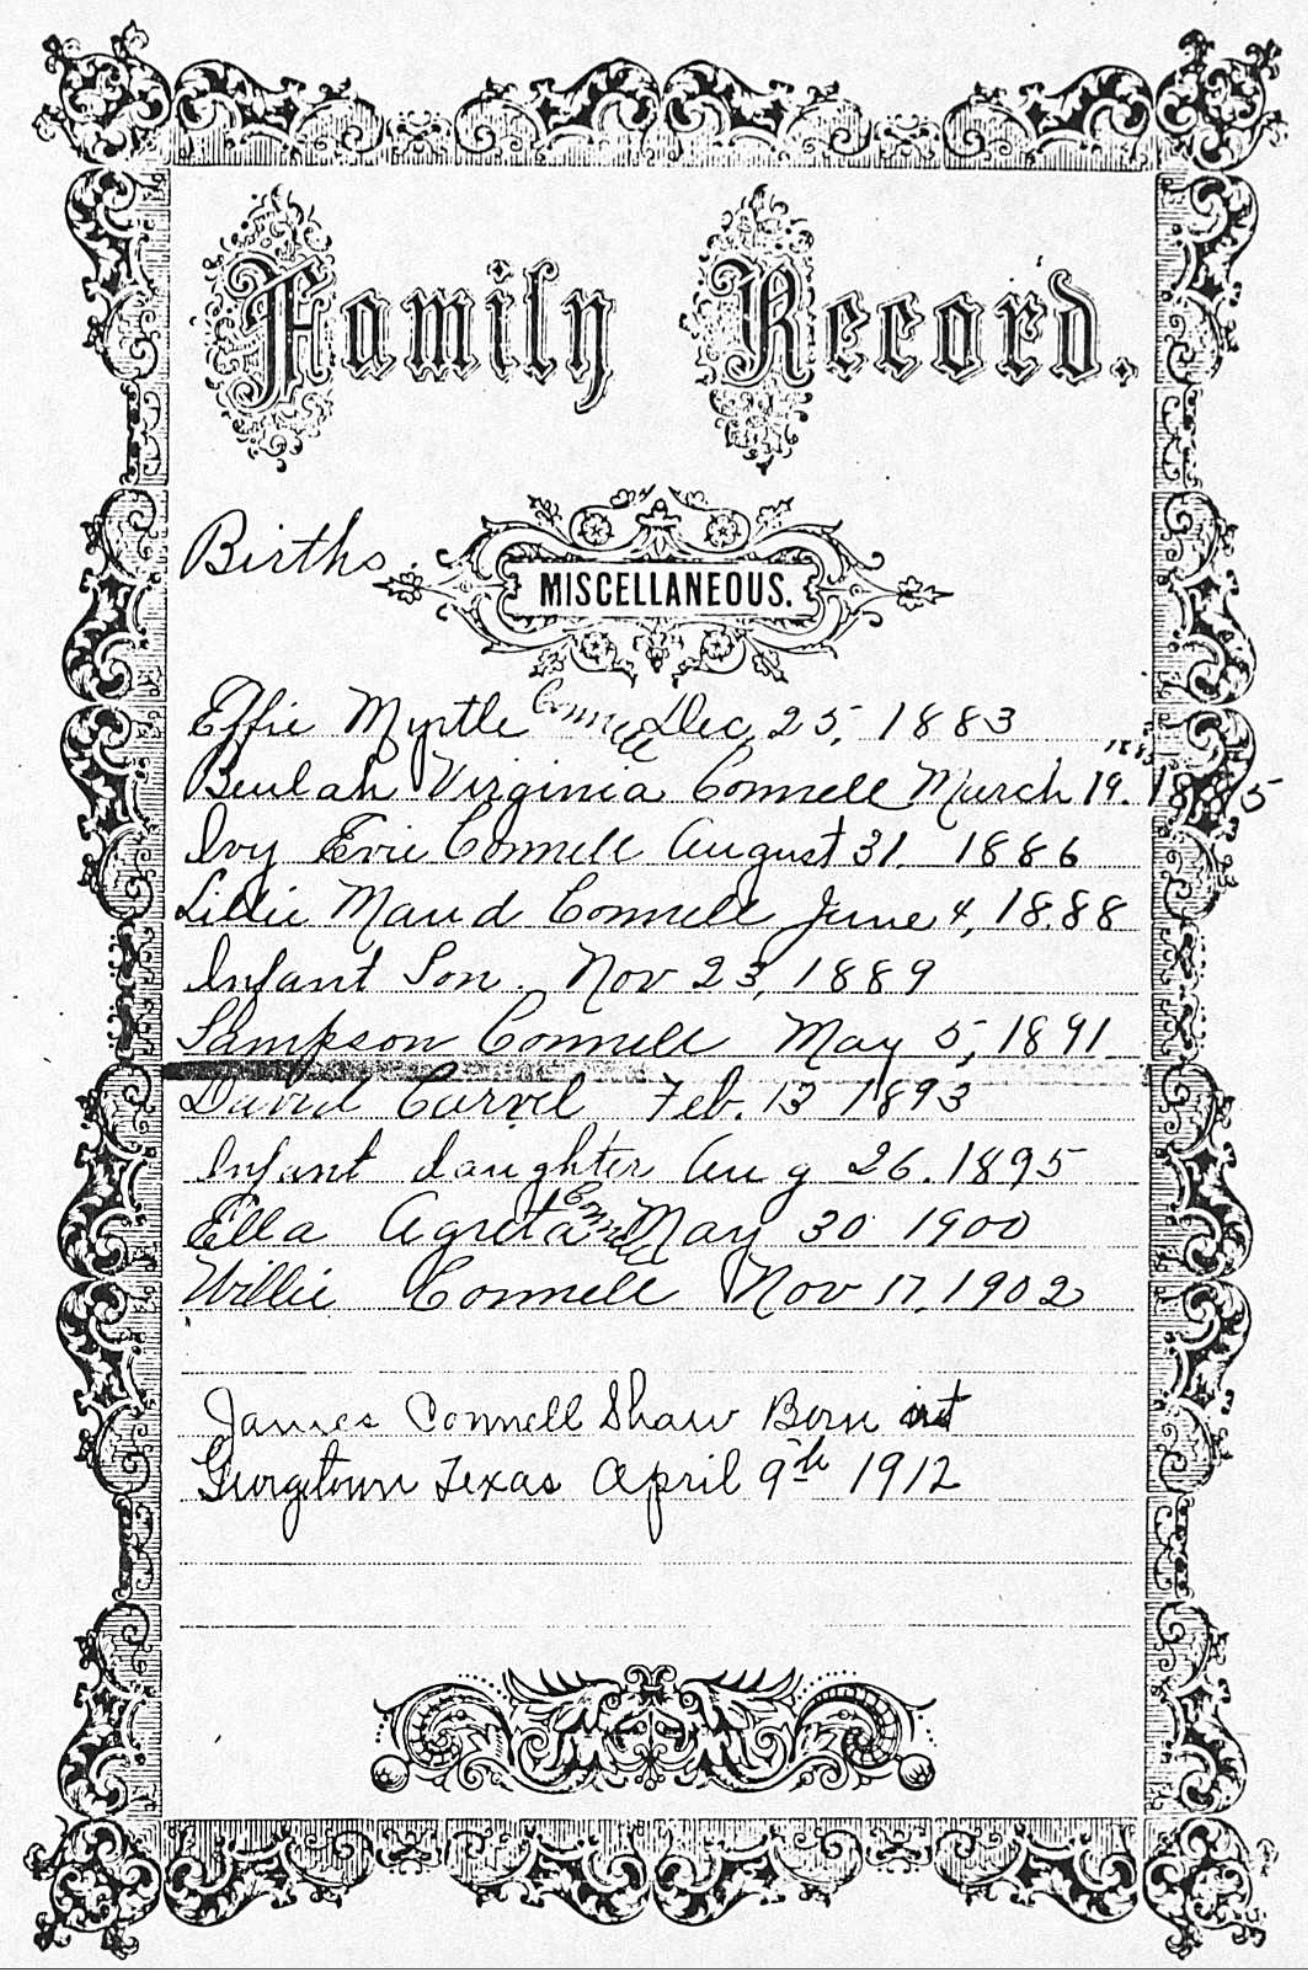 Family Record.
Births.
MISCELLANEOUS.
Effie Myrtle Connell Dec, 25, 1883
Beulah Virginia Connell March 19. 1885
Ivy Evie Connell August 31. 1886
Lillie Maud Connell June 4, 1888
Infant Son. Nov 23, 1889
Sampson Connell May 5, 1891
David Carvel Feb. 13 1893
Infant daughter Aug 26. 1895
Ella Agreta Connell May 30 1900
Willie Connell Nov 17, 1902
James Connell Shaw Born at
Georgetown Texas April 9th 1912